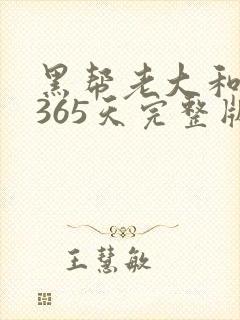 黑帮老大和
365天完整版
王慧敏